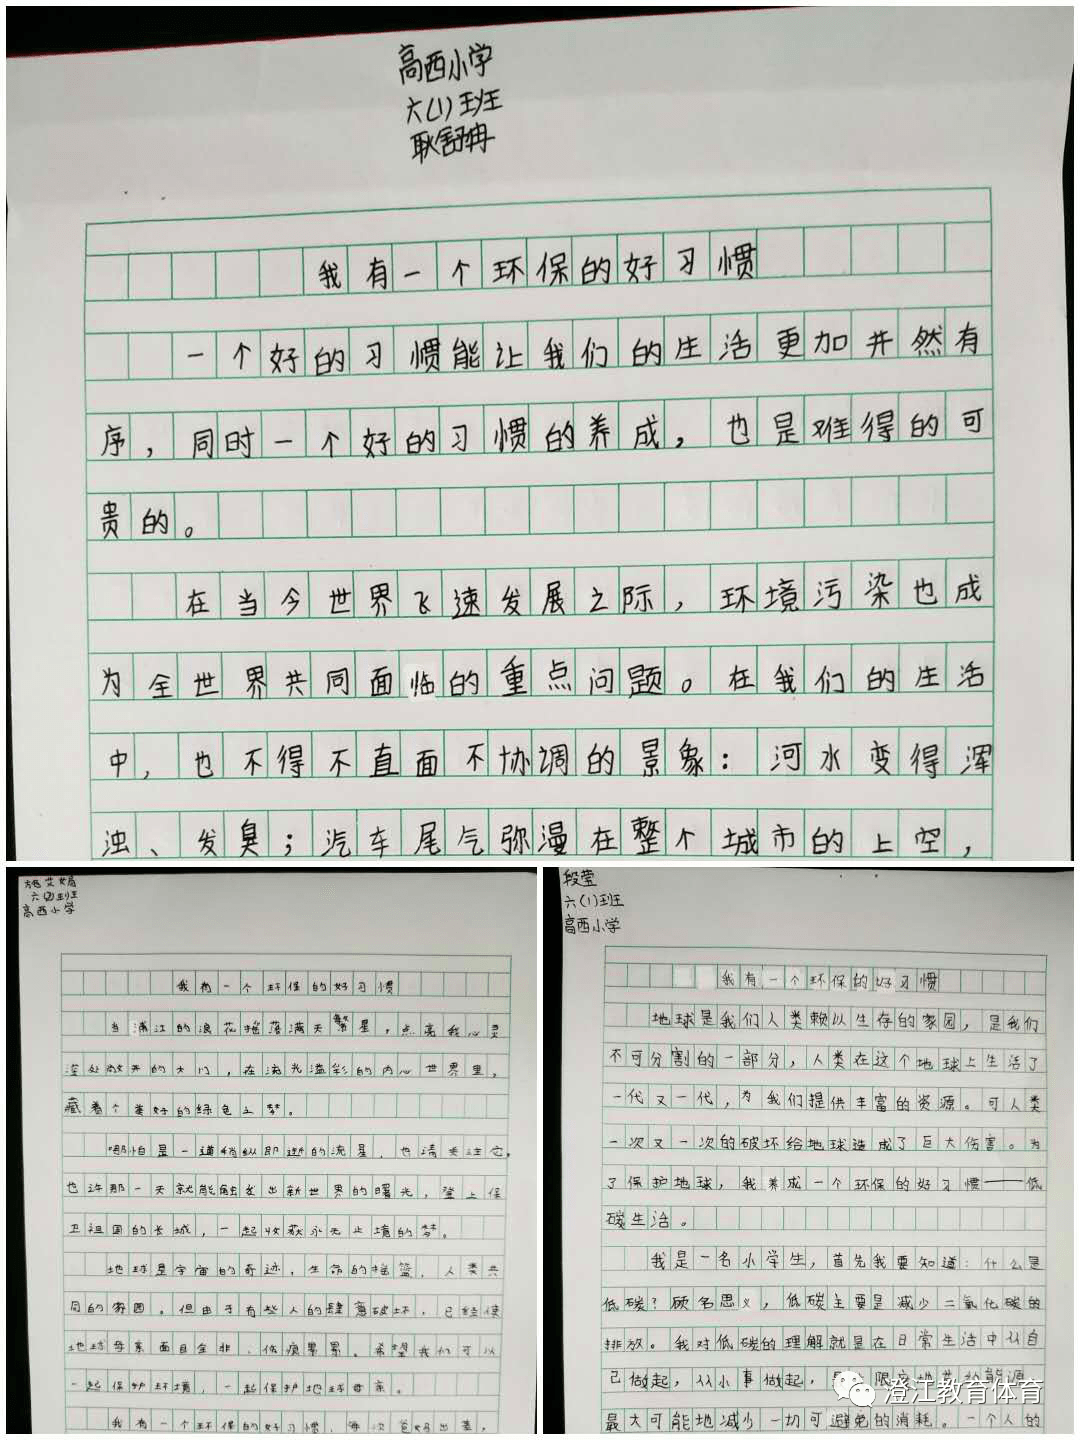 高西小学
六(1)班
耿舒冉
我有一个环保的好习惯
一个好的习惯能让我们的生活更加井然有
序，同时一个好的习惯的养成，也是难得的可
贵的。
在当今世界飞速发展之际，环境污染也成
为全世界共同面临的重点问题。在我们的生活
中，也不得不直面不协调的景象：河水变得浑
浊、发臭；汽车尾气弥漫在整个城市的上空，
六(2)班
高西小学
我有一个环保的好习惯
当满江的浪花摇落满天繁星，点亮我心灵
深处敞开的大门，在流光溢彩的内心世界里，
藏着个美好的绿色之梦。
哪怕是一道稍纵即逝的流星，也请关注它，
也许那一天就能触发出新世界的曙光，登上保
卫祖国的长城，一起收获永无止境的梦。
地球是宇宙的奇迹，生命的摇篮，人类共
同的家园。但由于有些人的肆意破坏，已经使
地球母亲面目全非、伤痕累累。希望我们可以
一起保护环境，一起保护地球母亲。
我有一个环保的好习惯，每次爸妈出差，
段莹
六(1)班
高西小学
我有一个环保的好习惯
地球是我们人类赖以生存的家园，是我们
不可分割的一部分，人类在这个地球上生活了
一代又一代，为我们提供丰富的资源。可人类
一次又一次的破坏给地球造成了巨大伤害。为
了保护地球，我养成一个环保的好习惯——低
碳生活。
我是一名小学生，首先我要知道：什么是
低碳？顾名思义，低碳主要是减少二氧化碳的
排放。我对低碳的理解就是在日常生活中从自
己做起，从小事做起，限度地
最大可能地减少一切可避免的消耗。一个人的
澄江教育体育